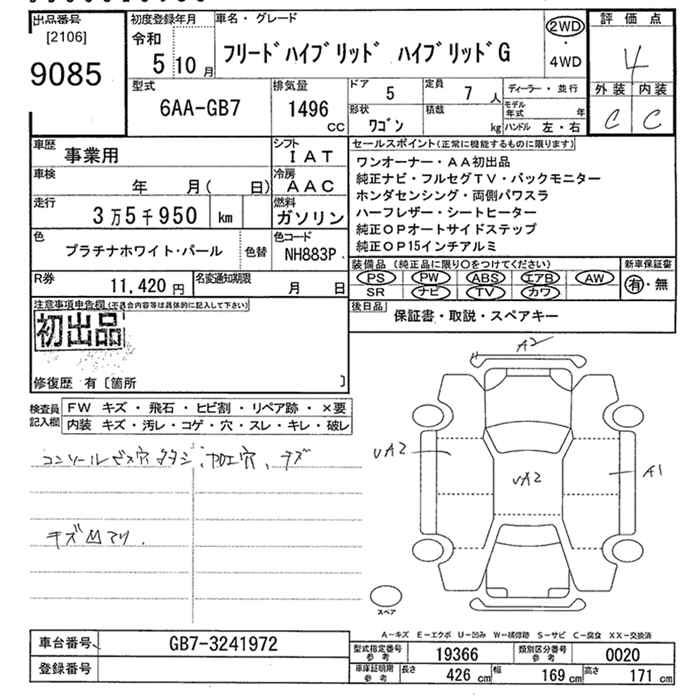 出品番号 初度登録年月 車名・グレード 2WD 評価点
[2106] 令和 フリードハイブリッド ハイブリッドG ・ 4
9085 5 10月 4WD
型式 排気量 ドア 5 定員 7人 ディーラー・並行 外装 内装
6AA-GB7 1496 cc 形状 ワゴン 積載 kg モデル年式 年 C C
ハンドル 左・右
車歴 事業用 シフト IAT セールスポイント(正常に機能するものに限ります)
ワンオーナー・AA初出品
車検 年 月( 日) 冷房 AAC 純正ナビ・フルセグTV・バックモニター
ホンダセンシング・両側パワスラ
走行 3万5千950 km 燃料 ガソリン ハーフレザー・シートヒーター
純正OPオートサイドステップ
色 プラチナホワイト・パール 色替 色コード NH883P 純正OP15インチアルミ
装備品(純正品に限り○をつけてください) 新車保証書
R券 11,420円 名変通知期限 月 日 PS PW ABS エアB AW 有・無
SR ナビ TV カワ
注意事項申告欄(不具合内容等は具体的に記入して下さい) 後日品 保証書・取説・スペアキー
初出品
修復歴 有[箇所 ]
A2
検査員記入欄 FW キズ・飛石・ヒビ割・リペア跡・×要
内装 キズ・汚レ・コゲ・穴・スレ・キレ・破レ
コンソールビス穴 加工穴、キズ
UA2 UA2 A1
キズ凹アリ.
スペア
A-キズ E-エクボ U-凹み W-補修跡 S-サビ C-腐食 XX-交換済
車台番号 GB7-3241972 型式指定番号 参考 19366 類別区分番号 参考 0020
登録番号 車庫証明用 参考 長さ 426cm 幅 169cm 高さ 171cm